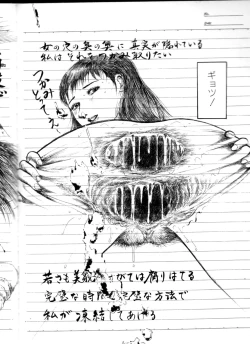 女の穴の奥の奥に 真実が隠れている
私はそれをつかみ取りたい
つかみ
とってくれ
ギョッ!
若さも美貌も
がては腐りはてる
完璧な時
完璧な方法で
私が凍結してあげる